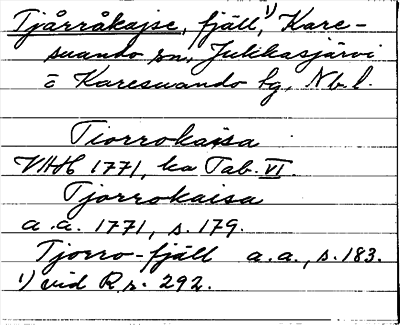 Tjårråkajse, fjäll,¹⁾ Kare-
suando sn, Jukkasjärvi
o Karesuando tg, Nb. l.
Tiorrokaisa
VAH 1771, ka Tab. VI.
Tjorrokaisa
a. a. 1771, s. 179.
Tjorro-fjäll a. a., s. 183.
¹⁾ vid R. r. 292.